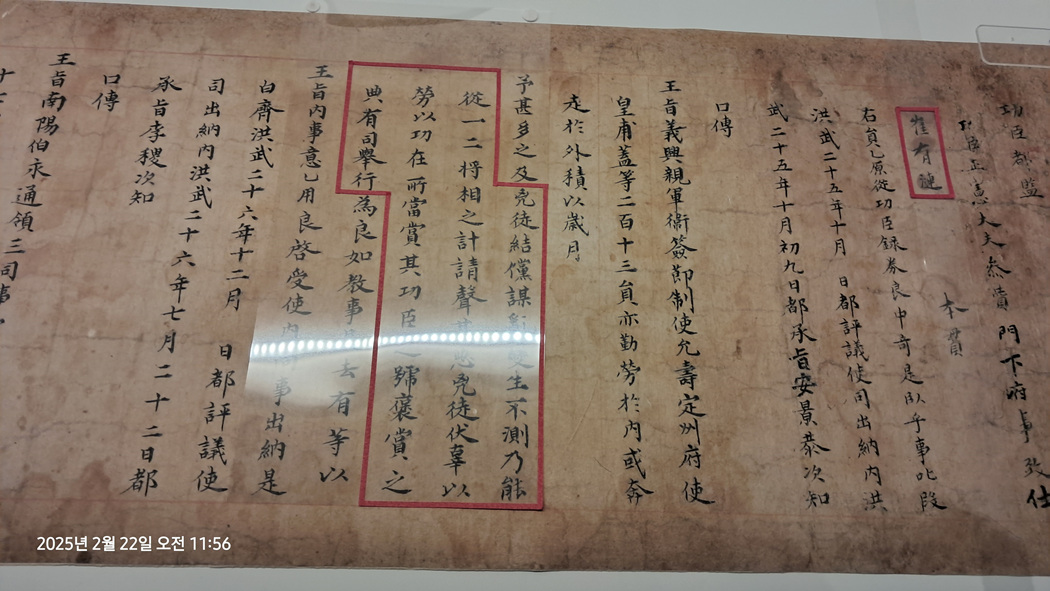 功臣都監
功臣正憲大夫參賛門下府事致仕
崔有漣 本貫
右員乙原從功臣錄券良中可是臥乎事叱段
洪武二十五年十月 日都評議使司出納內洪
武二十五年十月初九日都承旨安景恭次知
口傳
王旨義興親軍衛簽節制使允壽定州府使
皇甫蓋等二百十三員亦勤勞於內或奔
走於外積以歲月
予甚多之及兇徒結儻謀亂變生不測乃能
從一二將相之計請聲其惡兇徒伏辜以
勞以功在所當賞其功臣之號褒賞之
典有司舉行為良如教事是去有等以
王旨內事意乙用良啓受使內等事出納是
白齊洪武二十六年十二月 日都評議使
司出納內洪武二十六年七月二十二日都
承旨李稷次知
口傳
王旨南陽伯永通領三司事
2025년 2월 22일 오전 11:56